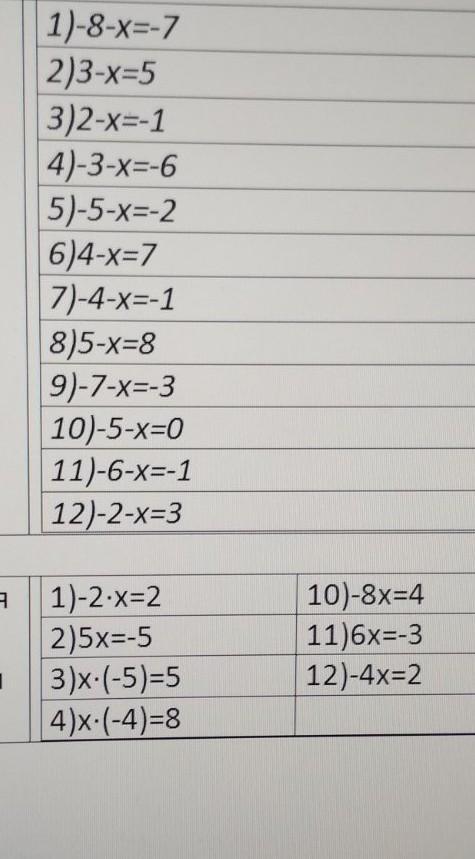 1)-8-x=-7
2)3-x=5
3)2-x=-1
4)-3-x=-6
5)-5-x=-2
6)4-x=7
7)-4-x=-1
8)5-x=8
9)-7-x=-3
10)-5-x=0
11)-6-x=-1
12)-2-x=3
я
1)-2·x=2
10)-8x=4
2)5x=-5
11)6x=-3
3)x·(-5)=5
12)-4x=2
4)x·(-4)=8